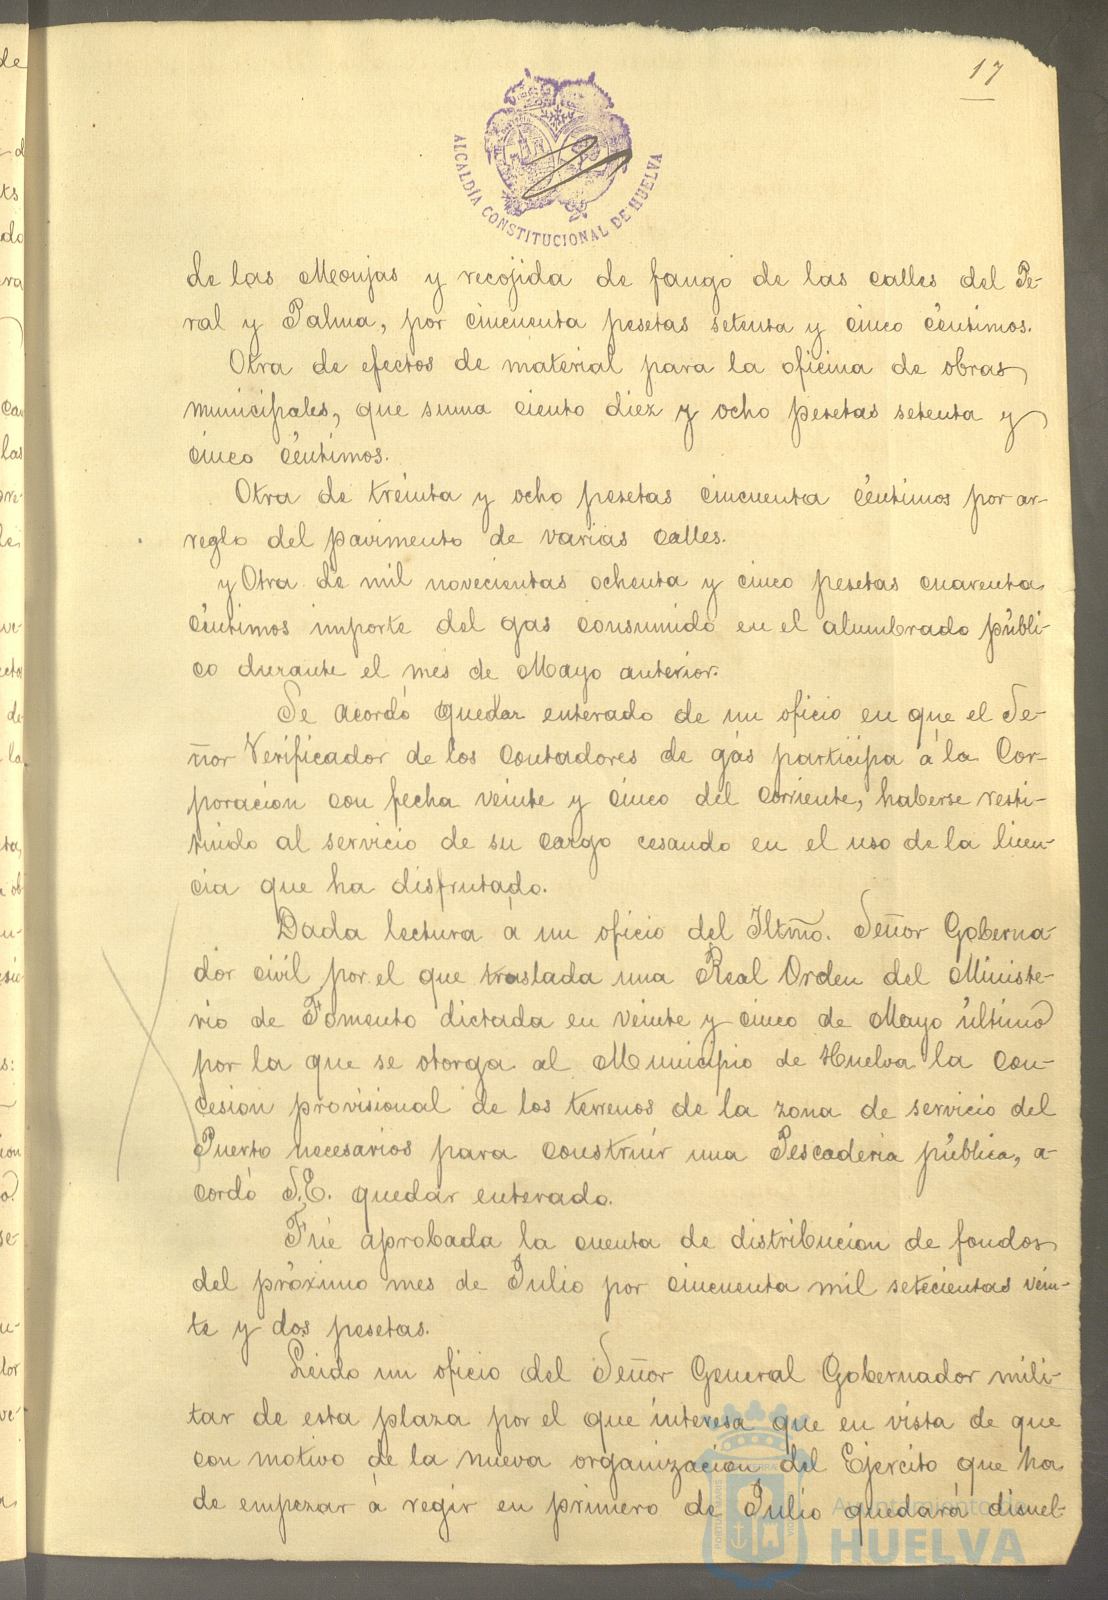 17
ALCALDÍA CONSTITUCIONAL DE HUELVA
de las Monjas y recojida de fango de las calles del Pe-
ral y Palma, por cincuenta pesetas setenta y cinco céntimos.
Otra de efectos de material para la oficina de obras
municipales, que suma ciento diez y ocho pesetas setenta y
cinco céntimos.
Otra de treinta y ocho pesetas cincuenta céntimos por ar-
reglo del pavimento de varias calles.
y Otra de mil novecientas ochenta y cinco pesetas cuarenta
céntimos importe del gas consumido en el alumbrado públi-
co durante el mes de Mayo anterior.
Se acordó quedar enterado de un oficio en que el Se-
ñor Verificador de los Contadores de gás participa á la Cor-
poración con fecha veinte y cinco del corriente, haberse resti-
tuido al servicio de su cargo cesando en el uso de la licen-
cia que ha disfrutado.
Dada lectura á un oficio del Iltmo. Señor Goberna-
dor civil por el que traslada una Real Orden del Ministe-
rio de Fomento dictada en veinte y cinco de Mayo último
por la que se otorga al Municipio de Huelva la con-
cesion provisional de los terrenos de la zona de servicio del
Puerto necesarios para construir una Pescaderia pública, a-
cordó S.E. quedar enterado.
Fué aprobada la cuenta de distribucion de fondos
del próximo mes de Julio por cincuenta mil setecientas vein-
te y dos pesetas.
Leido un oficio del Señor General Gobernador mili-
tar de esta plaza por el que interesa que en vista de que
con motivo de la nueva organización del Ejército que ha
de empezar á regir en primero de Julio quedará disuel-
Ayuntamiento de
HUELVA